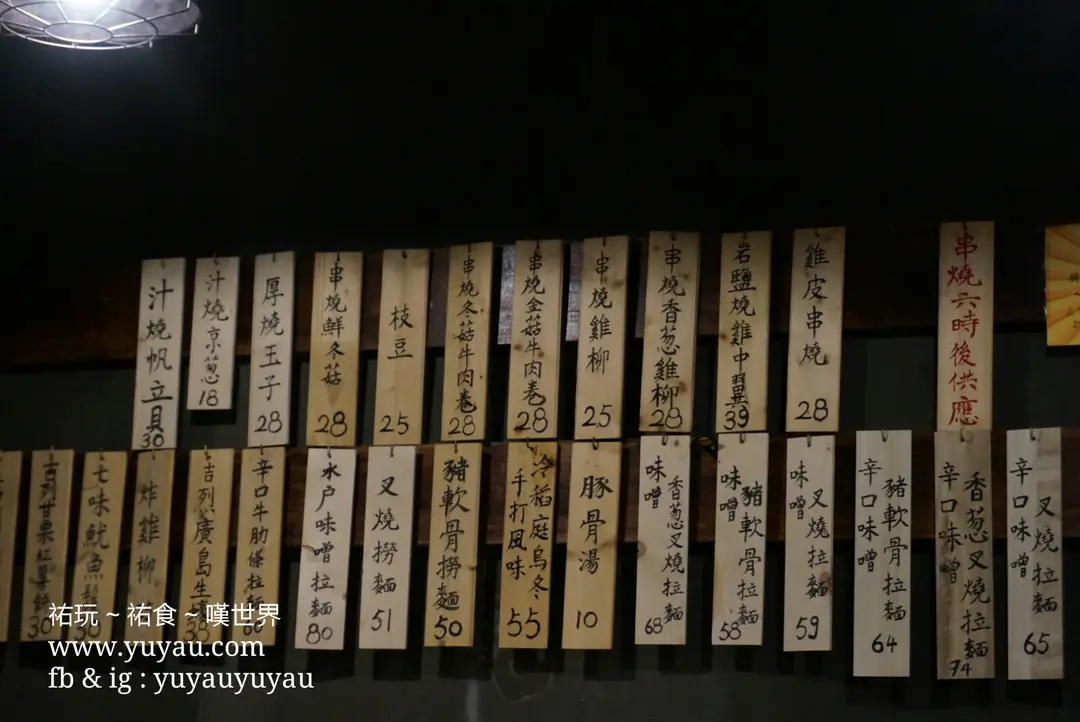 汁燒帆立貝 30
汁燒京葱 18
厚燒玉子 28
串燒鮮冬菇 28
枝豆 25
串燒冬菇牛肉卷 28
串燒金菇牛肉卷 28
串燒雞柳 25
串燒香葱雞柳 28
岩鹽燒雞中翼 39
雞皮串燒 28
串燒六時後供應
吉列甘栗紅薯餅 30
七味魷魚鬚 30
炸雞柳
吉列廣島生蠔 38
辛口牛肋條拉麵 60
水户味噌拉麵 80
叉燒撈麵 51
豬軟骨撈麵 50
冷稻庭烏冬
手打風味 55
豚骨湯 10
香葱叉燒拉麵
味噌 68
豬軟骨拉麵
味噌 58
叉燒拉麵
味噌 59
豬軟骨拉麵
辛口味噌 64
香葱叉燒拉麵
辛口味噌 74
叉燒拉麵
辛口味噌 65
祐玩 ~ 祐食 ~ 嘆世界
www.yuyau.com
fb & ig : yuyauyuyau